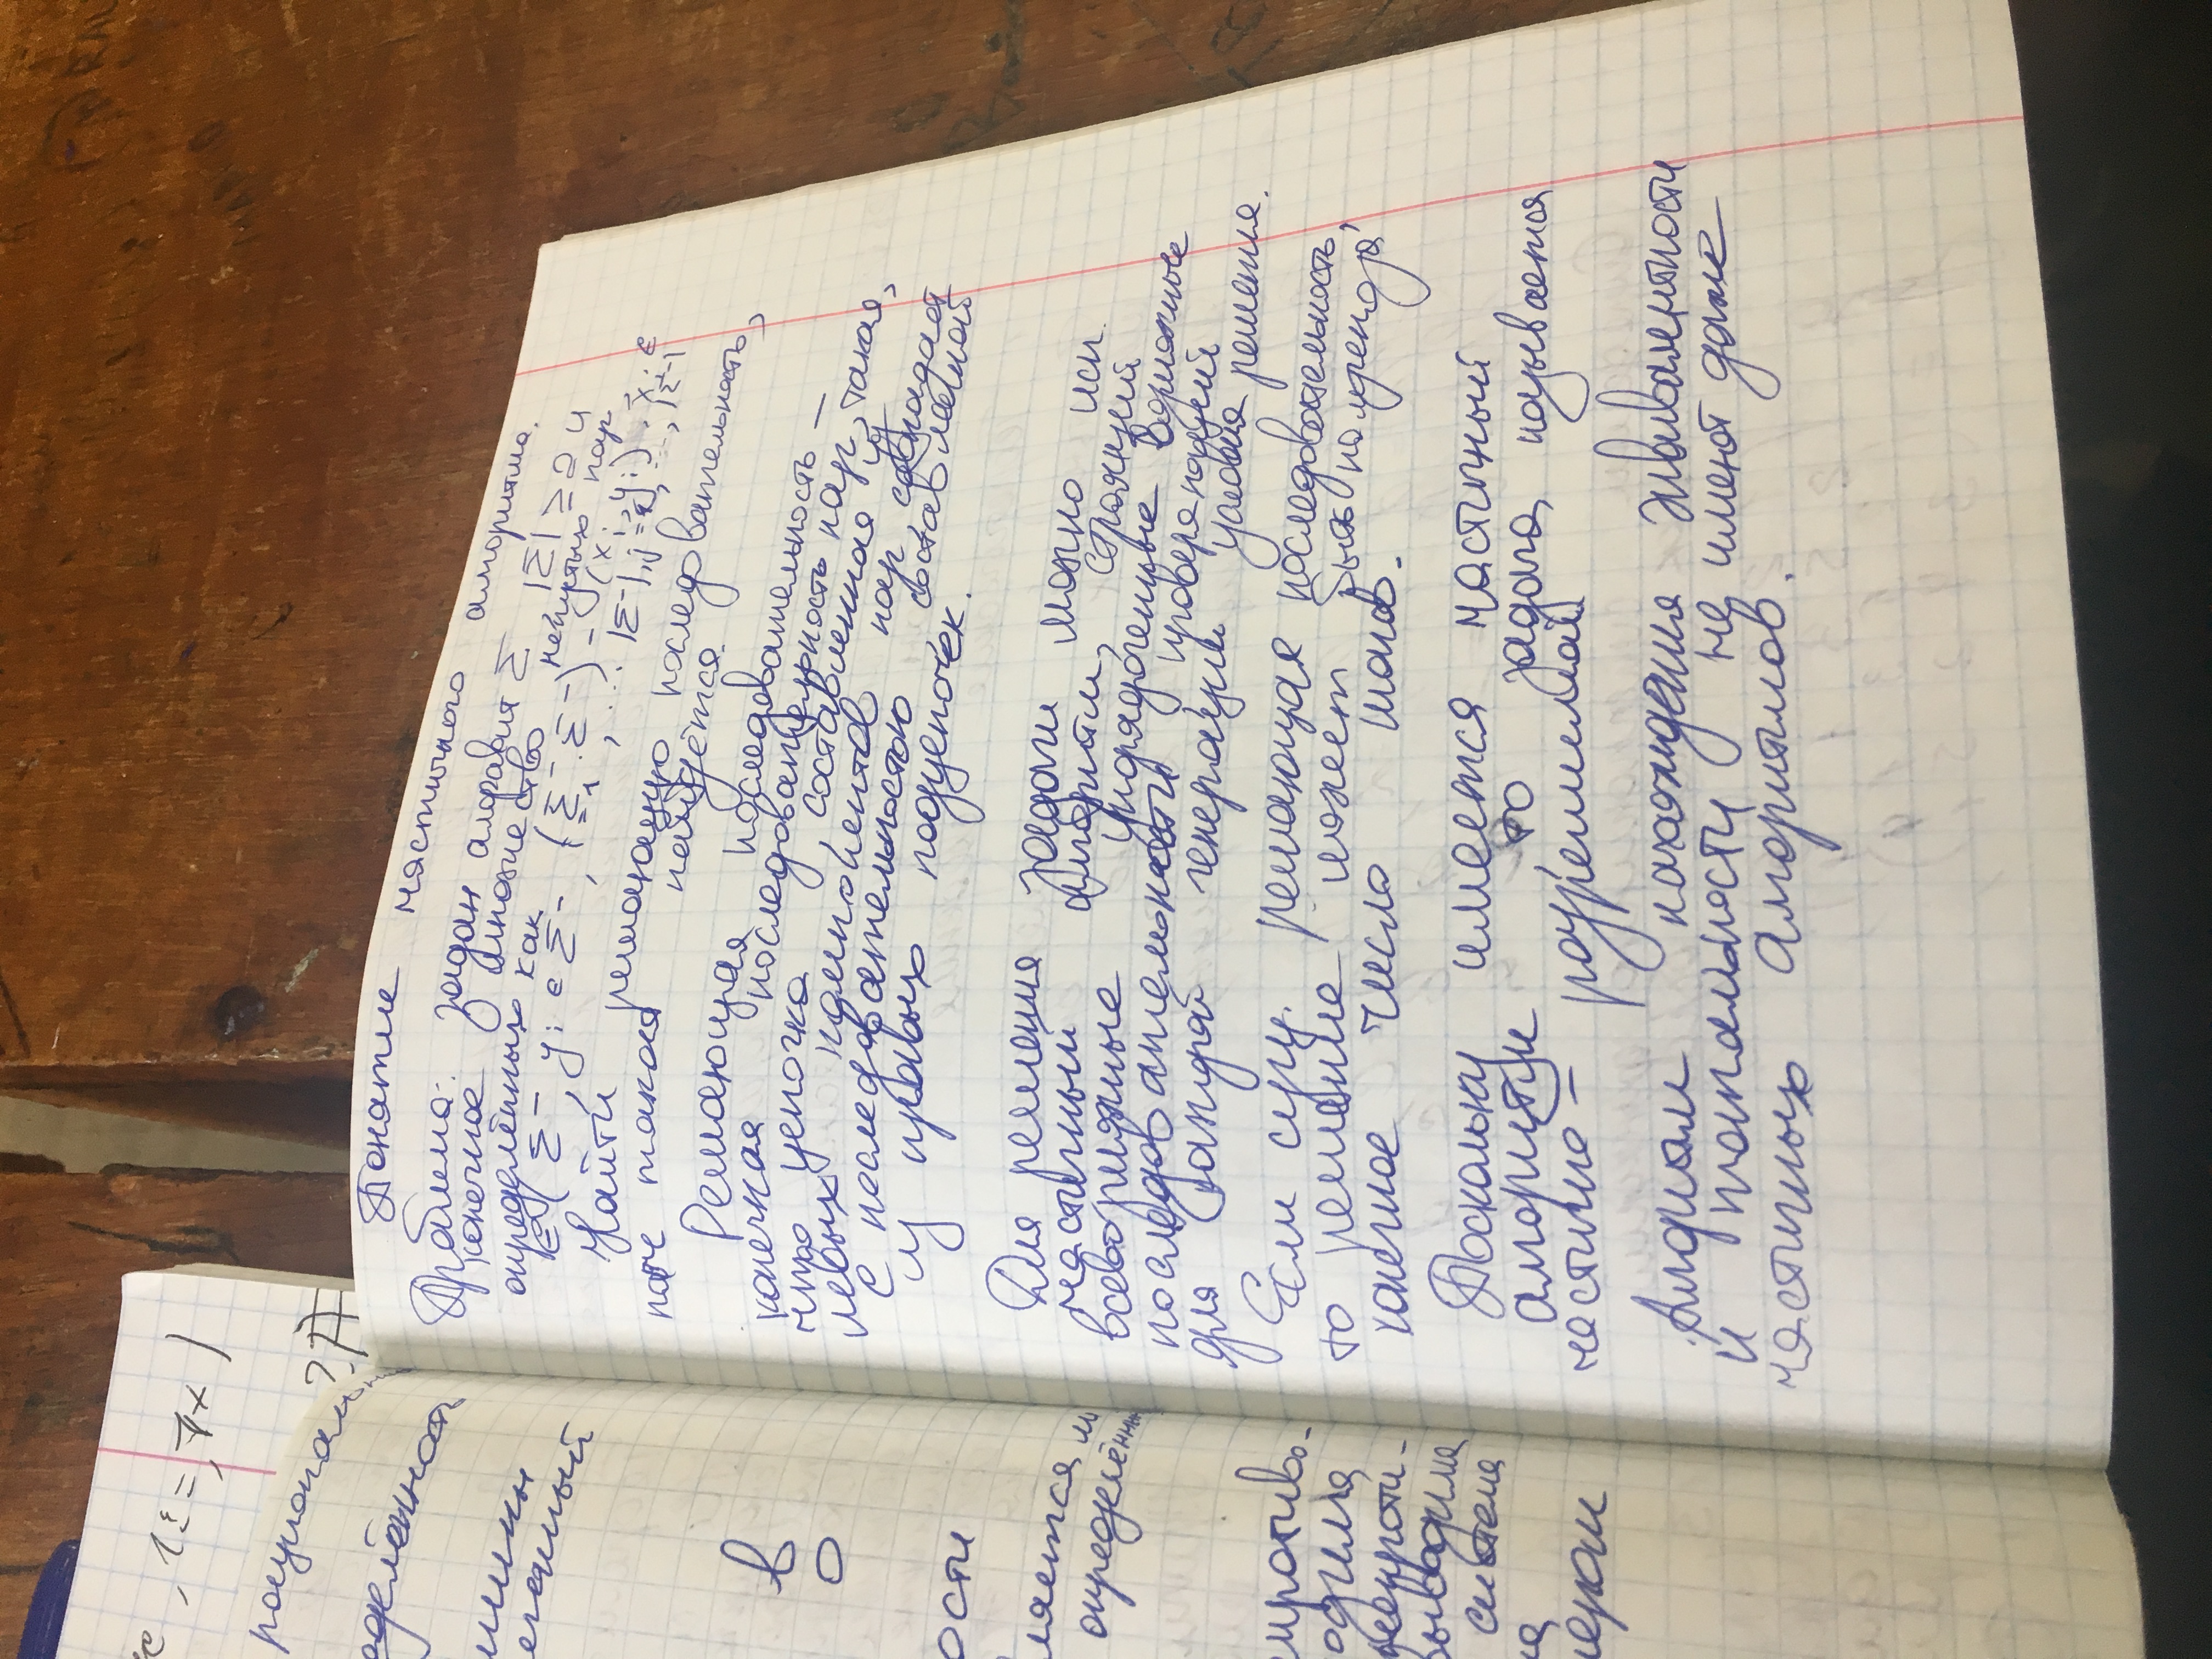 с, 1 = , 7x )
рационал
?, А
еделённость
шины
ечённый
в
о
ости
ляется ли
определённы
противо-
одима
непроти-
выводима
система
на
мером
Понятие частичного алгоритма.
Проблема: задан алфавит Σ, |Σ| ≥ 2 и
конечное множество непустых пар,
определённых как (Σ⁻ Σ⁻) - (xᵢ, yᵢ). xᵢ ∈
∈ Σ⁻, yᵢ ∈ Σ⁻, i = 1, ... |Σ⁻|, j = 1, ..., |Σ⁻|
Найти решающую последовательность,
если такая найдётся.
Решающая последовательность —
конечная последовательность пар, такая,
что цепочка, составленная из
левых компонентов пар, совпадает
с последовательностью, составленной
из правых подцепочек.
Для решения задачи можно исп.
частичный алгоритм, строящий
всевозможные упорядоченные возможные
последовательности, проверяющий
для каждой генерации условия решения.
Если сущ. решающая последовательность,
то решение может быть получено за
конечное число шагов.
Поскольку имеется частичный
алгоритм, то задача называется
частично - разрешимой
Алфизм нахождения эквивалентности
и тотальности не имеют даже
частичных алгоритмов.